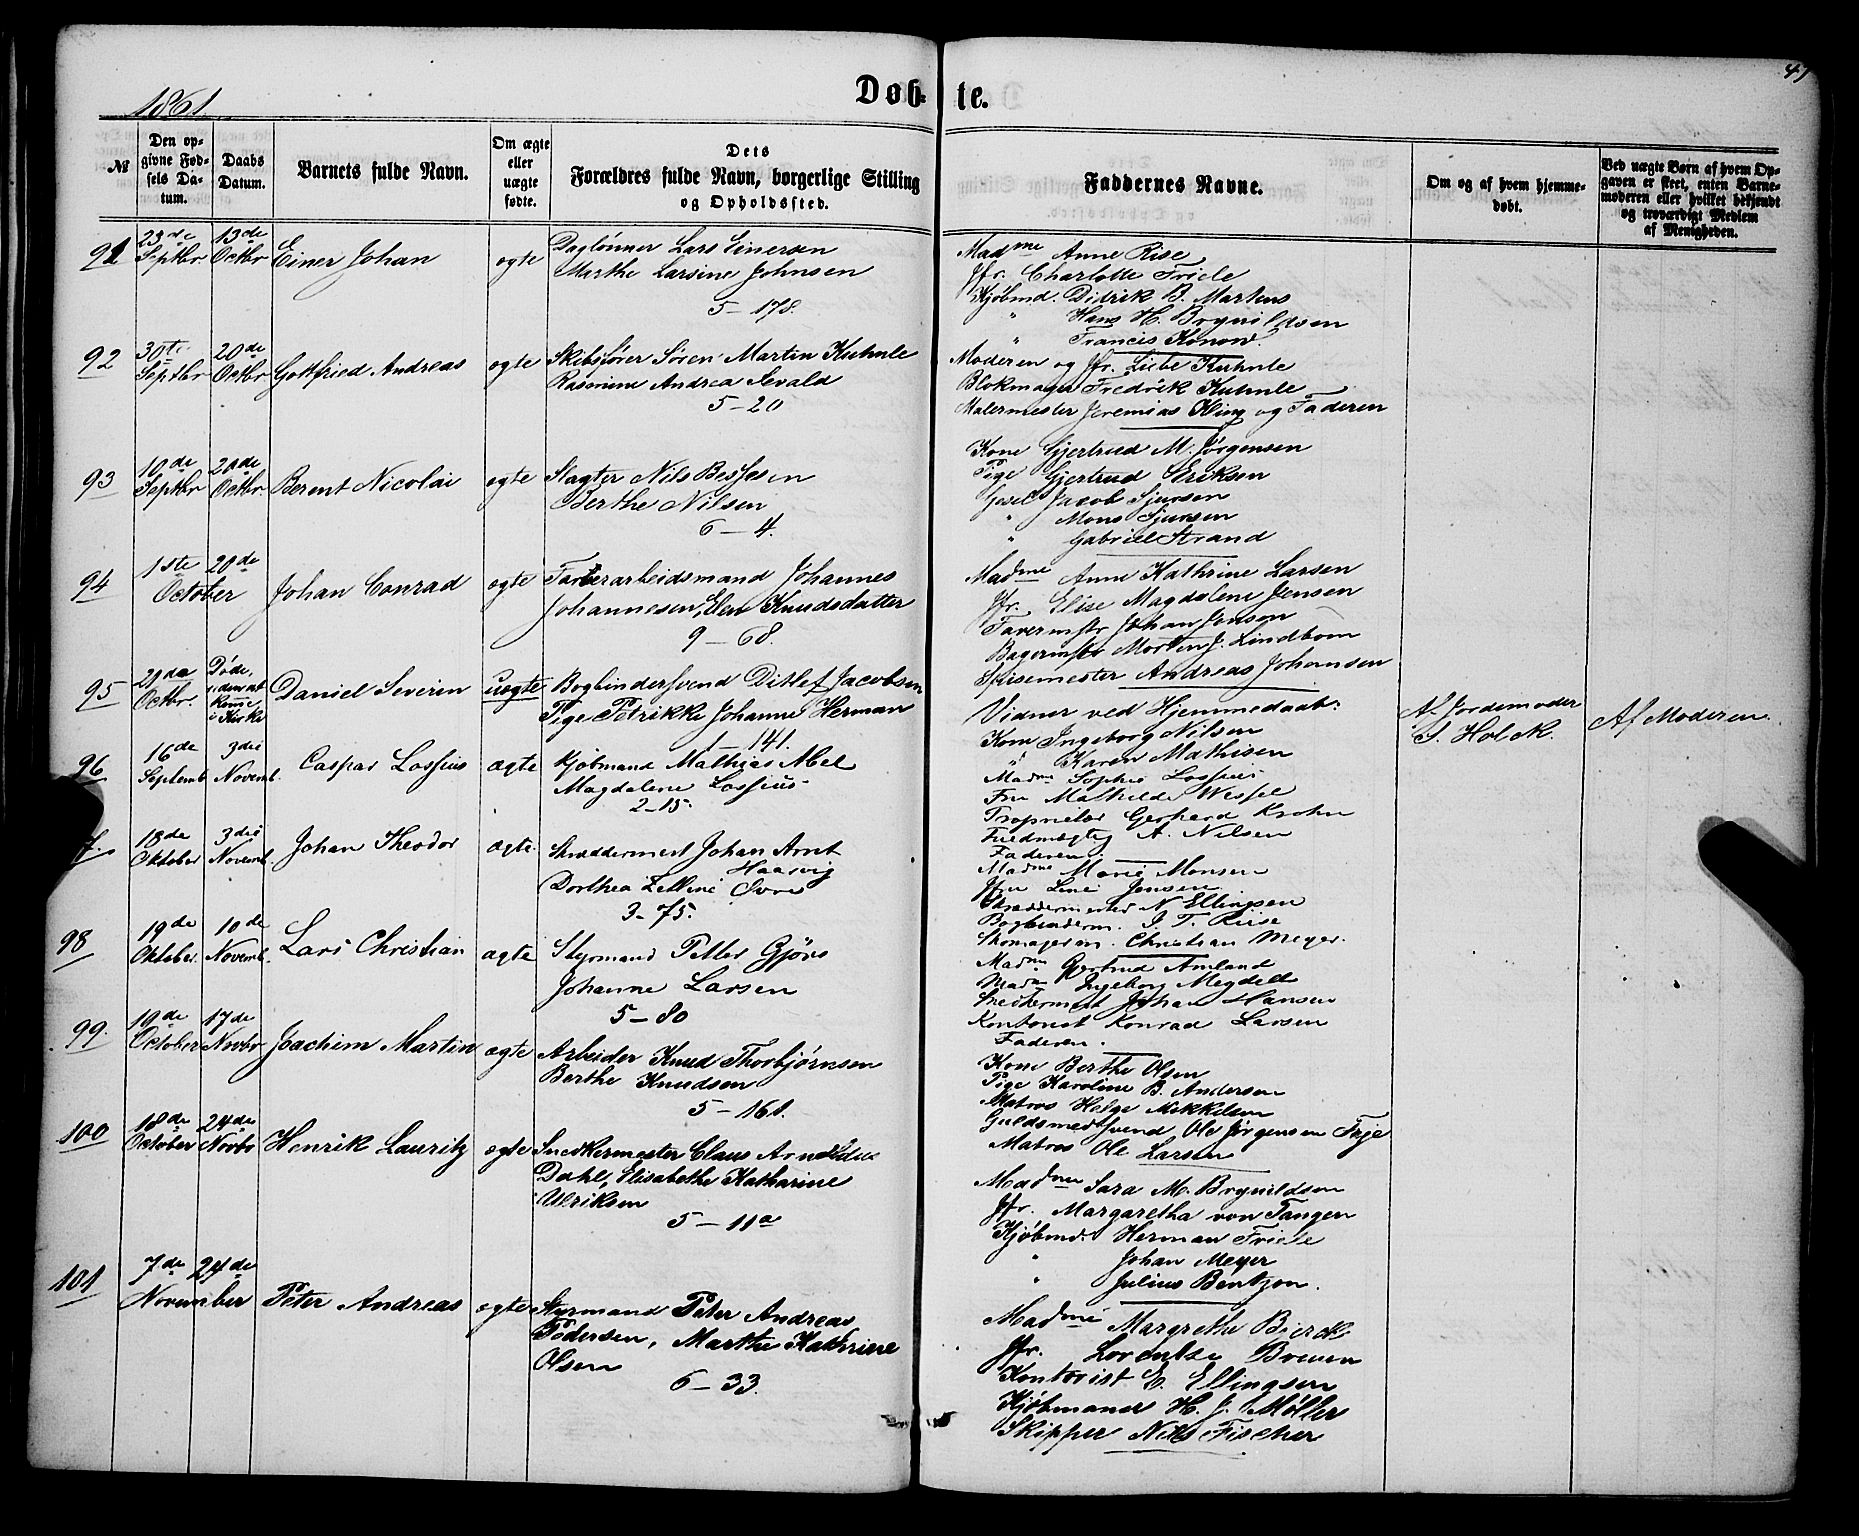 47
1861.
Døbte.
№
Den opgivne Fødsels Datum.
Daabs Datum.
Barnets fulde Navn.
Om ægte eller uægte fødte.
Dets Forældres fulde Navn, borgerlige Stilling og Opholdssted.
Faddernes Navne.
Om og af hvem hjemmedøbt.
Ved uægte Børn af hvem Opgaven er skeet, enten Barnemoderen eller hvilket bekjendt og troværdigt Medlem af Menigheden.
91 23de Septbr 13de Octbr Einer Johan ægte
Daglønner Lars Einersen
Marthe Larsine Johnsen
5 - 178.
Madme Anne Rise
Jfr. Charlotte Friele
Kjøbmd. Didrik B. Martens
" Hans H. Brynildsen
" Francis Konow.
92 30te Septbr 20de Octbr Gottfried Andreas ægte
Skibsfører Søren Martin Kuhnle
Andrea Sevald
5 - 20
Moderen og Jfr. Liebe Kuhnle
Blokmager Fredrik Kuhnle
Malermester Jeremias Kling og Faderen
93 10de Septbr 20de Octbr Berent Nicolai ægte
Slagter Nils Bessesen
Berthe Nilsen
6 - 4.
Kone Gjertrud M. Jørgensen
Pige Gjertrud Eriksen
Gesel Jacob Sjursen
" Mons Sjursen
" Gabriel Strand
94 1ste 20de October Johan Conrad ægte
Farverarbeidsmand Johannes
Johannesen, Elen Knudsdatter
9 - 68.
Madme Anne Kathrine Larsen
Jfr. Elise Magdalene Jensen
Farvermstr Johan Jansen
Bagermstr Morten J. Lindbom
Spisemester Andreas Johansen
95 Octbr. Døde, uden at komme i Kirke Daniel Severin uægte
Bogbindersvend Ditlef Jacobsen
Pige Petrikke Johanne Herman
1 - 141.
Vidner ved Hjemmedaab:
Kone Ingeborg Nilsen
" Karen Mathisen
Af Jordemoder
S. Holck.
Af Moderen.
96 16de Septemb 3die Novemb. Caspar Lossius ægte
Kjøbmand Mathias Abel
Magdalene Lossius
2 - 15.
Madme Sophie Lossius
Fru Mathilde Wessel
Proprietær Gerhard Krohn
Fuldmægtig A. Nilsen
Faderen.
7. 18de Oktober 3die Novemb. Johan Theodor ægte.
Skræddermest Johan Arnt
Haasvig
Dorthea Øvre
3 - 75.
Madme Marie Monsen
Jfru Line Jensen
Skræddermester N. Ellingsen
Bogbinderm. J. T. Riise
Skomagerm. Christian Meyer.
98 19de Oktober. 10de Novemb. Lars Christian ægte
Styrmand Petter Gjørs
Johanne Larsen
5 - 80
Madme Gjertrud Amland
Madm Ingeborg Megdell
Snedkermest Johan Hansen
Kontorist Konrad Larsen
Faderen.
99. 19de October 17de Novbr Joachim Martin ægte
Arbeider Knud Thorbjørnsen
Berthe Knudsen
5 - 161.
Kone Berthe Olsen
Pige Karoline B. Andersen
Matros Helge Mikkelsen
Guldsmedsvend Ole Jørgensen
Matros Ole Larsen
100 18de October 24de Novbr Henrik Lauritz ægte
Snedkermester Claus
Dahl, Elisabethe Katharine
Ulriksen
5 - 11a
Madme Sara M. Brynildsen
Jfr. Margaretha von Tangen
Kjøbmd. Herman Friele
" Johan Meyer
" Julius Bentzon.
101 7de 24de November Peter Andreas ægte
Styrmand Peter Andreas
Pedersen, Marthe Kathrine
Olsen
6 - 33.
Madme Margrethe Bierck
Jfr. Lorentse Breuen
Kontorist E. Ellingsen
Kjøbmand H. J. Møller
Skipper Nils Fischer